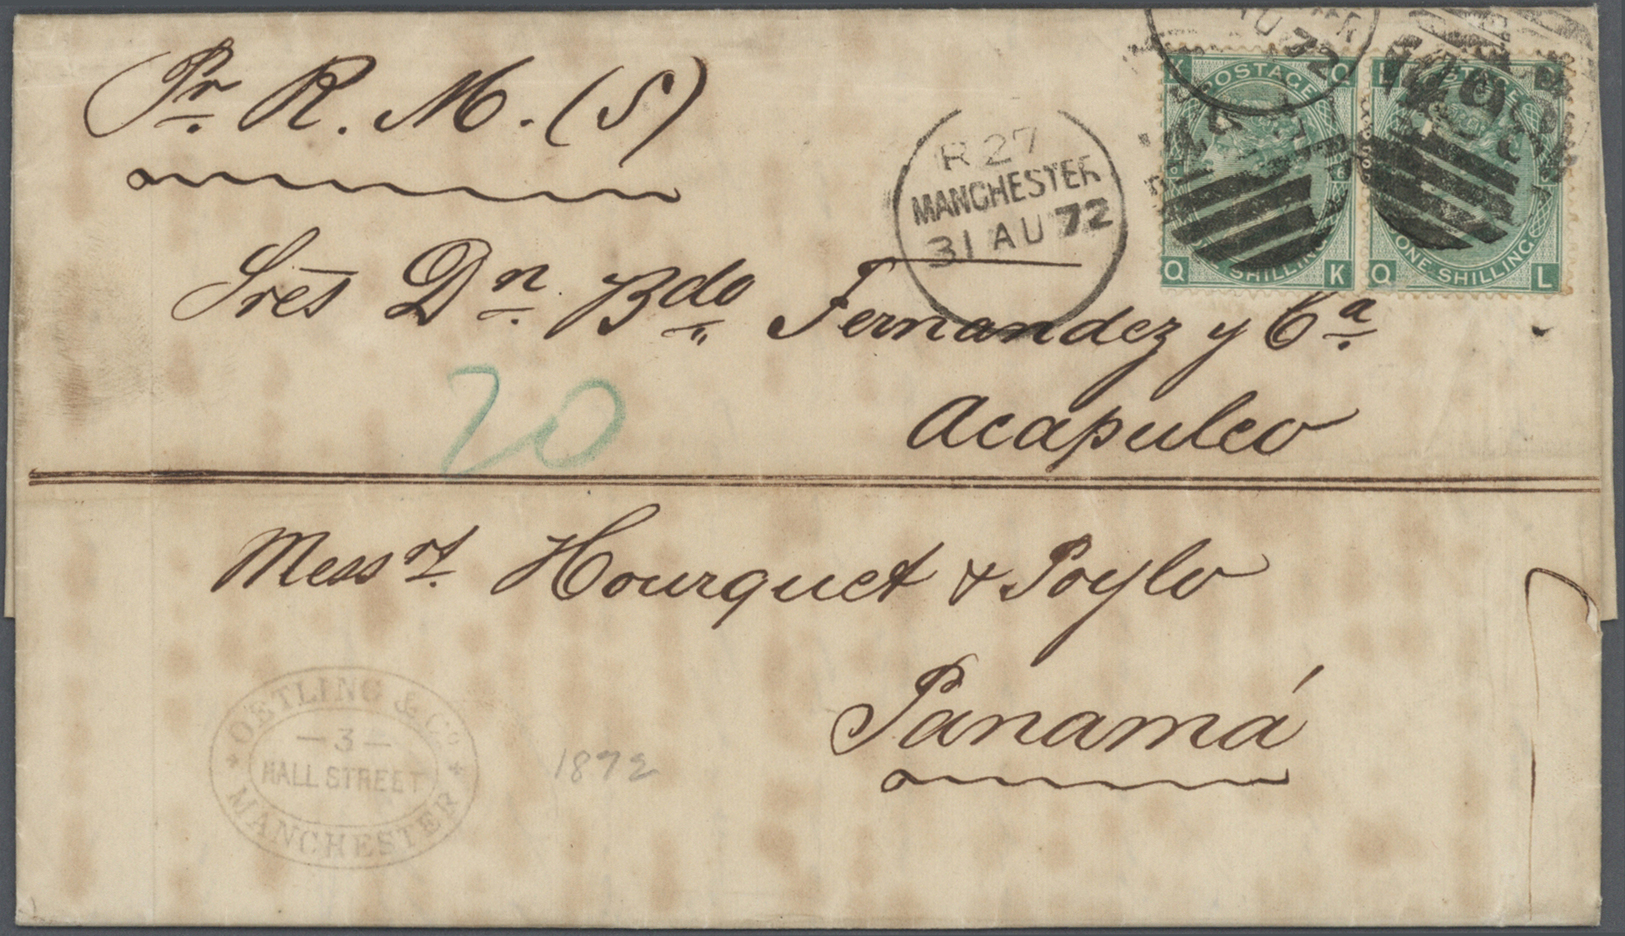 Pr. R. M. (S)
R 27
MANCHESTER
31 AU 72
AU 72
K Q
POSTAGE
ONE SHILLING
Q K
L
POSTAGE
ONE SHILLING
Q L
Sres Dn. Bdo Fernandez y Ca.
Acapulco
20
Messrs. Hourquet & Poylo
Panamá
OETLING & Co.
— 3 —
HALL STREET
MANCHESTER
1872